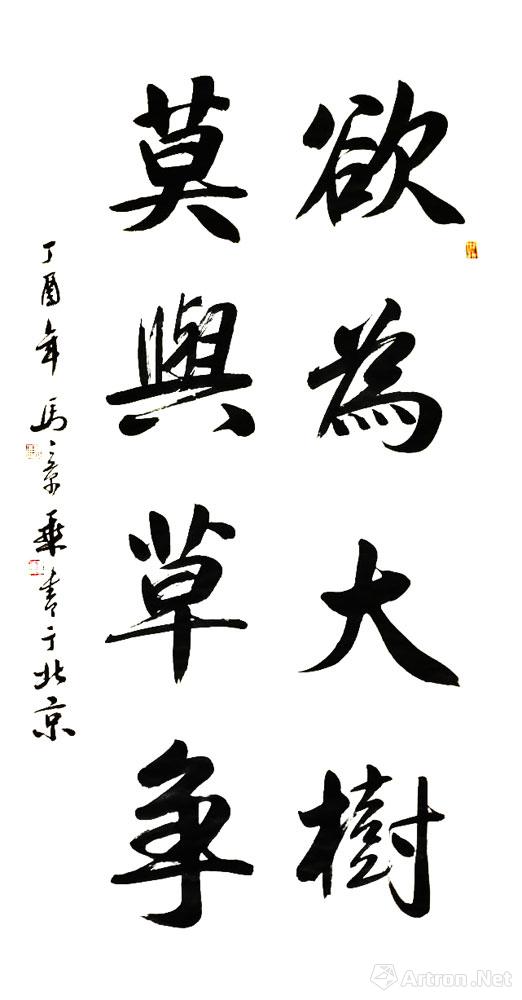 欲為大樹
莫與草争
丁酉年馬景乗書于北京
Artron.Net